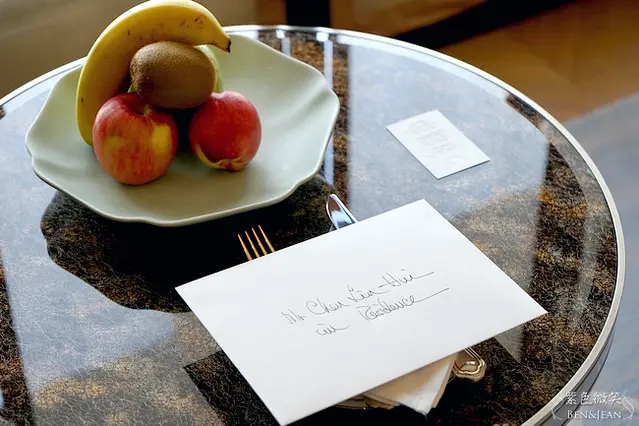 Mr Chen Lin-Hui
in Residence
紫色微笑
BEN&JEAN